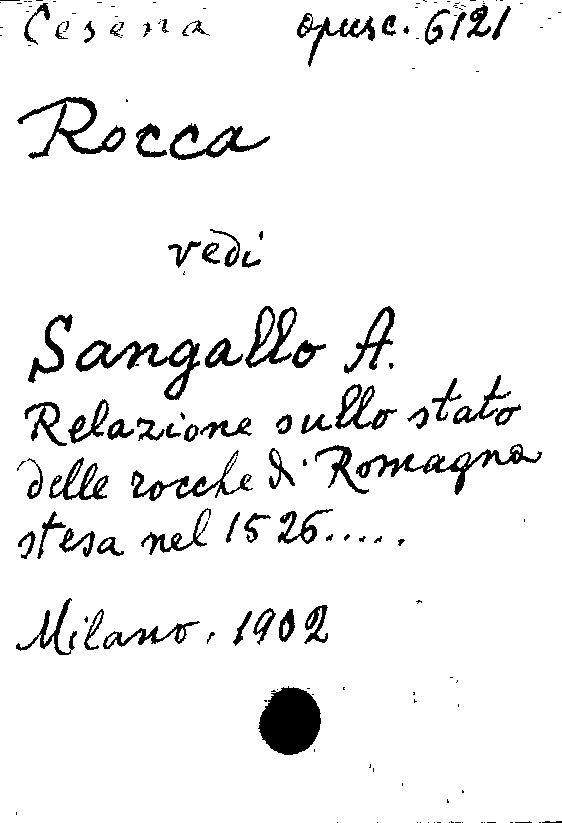 Cesena opusc. 6121
Rocca
vedi
Sangallo A.
Relazione sullo stato
delle rocche di Romagna
stesa nel 1526.....
Milano. 1902